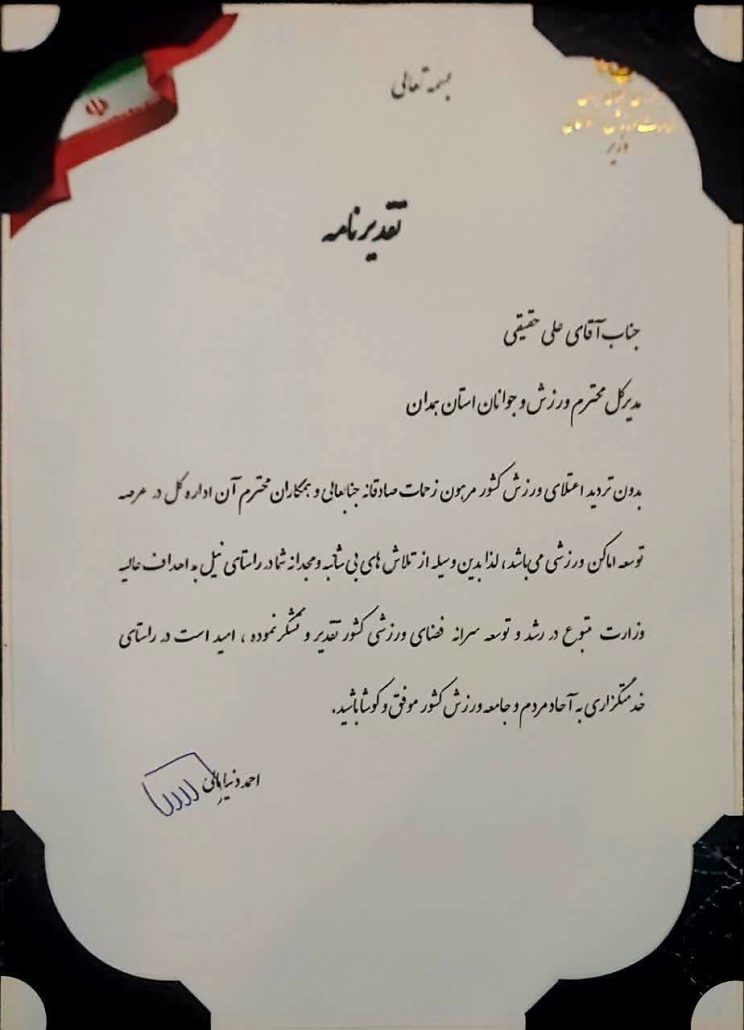 بسمه تعالی
وزیر
تقدیرنامه
جناب آقای علی حقیقی
مدیرکل محترم ورزش و جوانان استان همدان
بدون تردید اعتلای ورزش کشور مرهون زحمات صادقانه جنابعالی و همکاران محترم آن اداره کل در عرصه
توسعه اماکن ورزشی می‌باشد، لذا بدین وسیله از تلاش های بی شائبه و مجدانه شما در راستای نیل به اهداف عالیه
وزارت متبوع در رشد و توسعه سرانه فضای ورزشی کشور تقدیر و تشکر نموده، امید است در راستای
خدمتگزاری به آحاد مردم و جامعه ورزش کشور موفق و کوشا باشید.
احمد دنیامالی